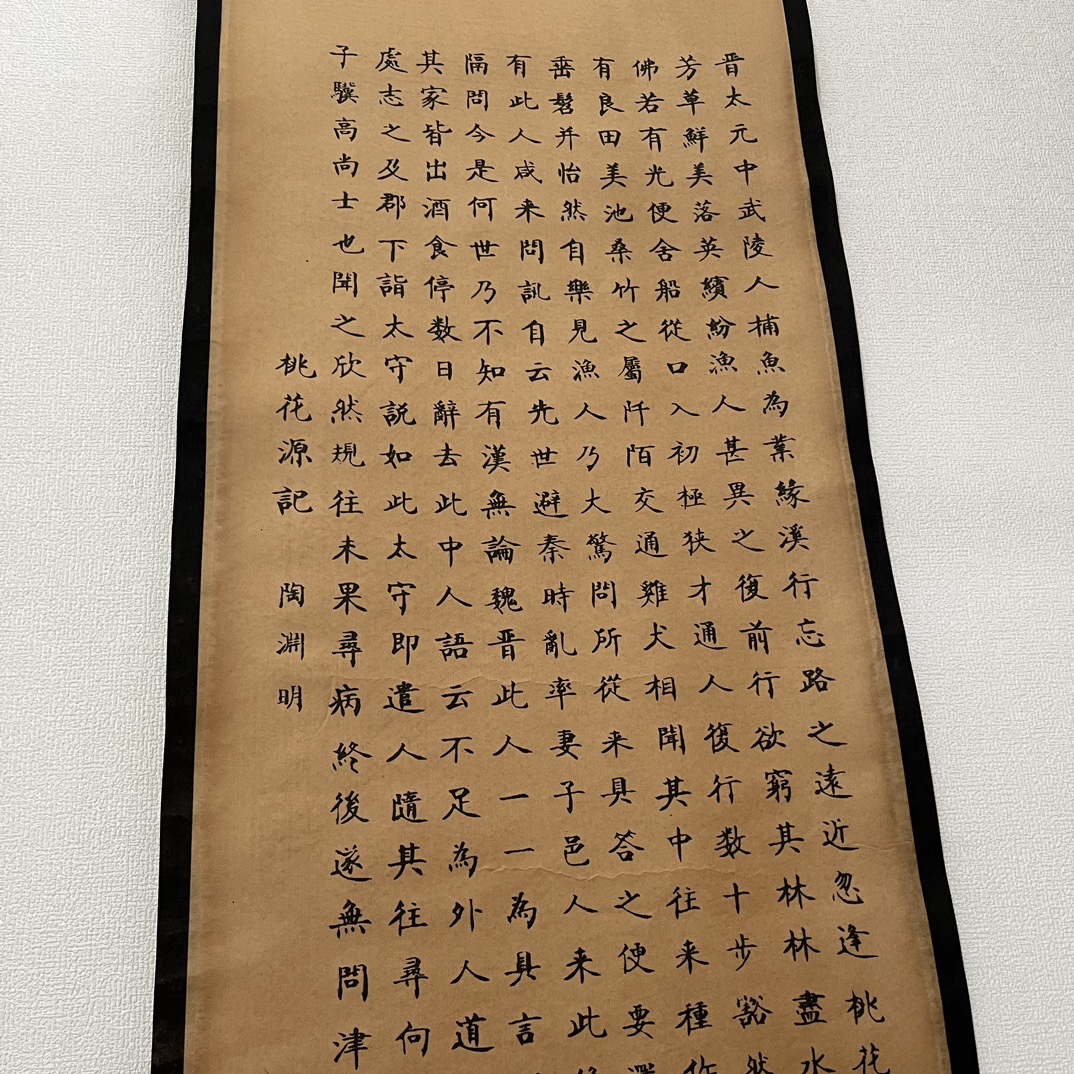 晋太元中武陵人捕魚為業緣溪行忘路之遠近忽逢桃花
芳草鮮美落英繽紛漁人甚異之復前行欲窮其林林盡水
佛若有光便舍船從口入初極狭才通人復行数十步豁然
有良田美池桑竹之屬阡陌交通雞犬相聞其中往来種作
垂髫并怡然自樂見漁人乃大驚問所從来具答之便要還
有此人咸来問訊自云先世避秦時亂率妻子邑人来此
隔問今是何世乃不知有漢無論魏晋此人一一為具言
其家皆出酒食停数日辭去此中人語云不足為外人道
處志之及郡下詣太守説如此太守即遣人隨其往尋向
子驥高尚士也聞之欣然規往未果尋病終後遂無問津
桃花源記 陶淵明